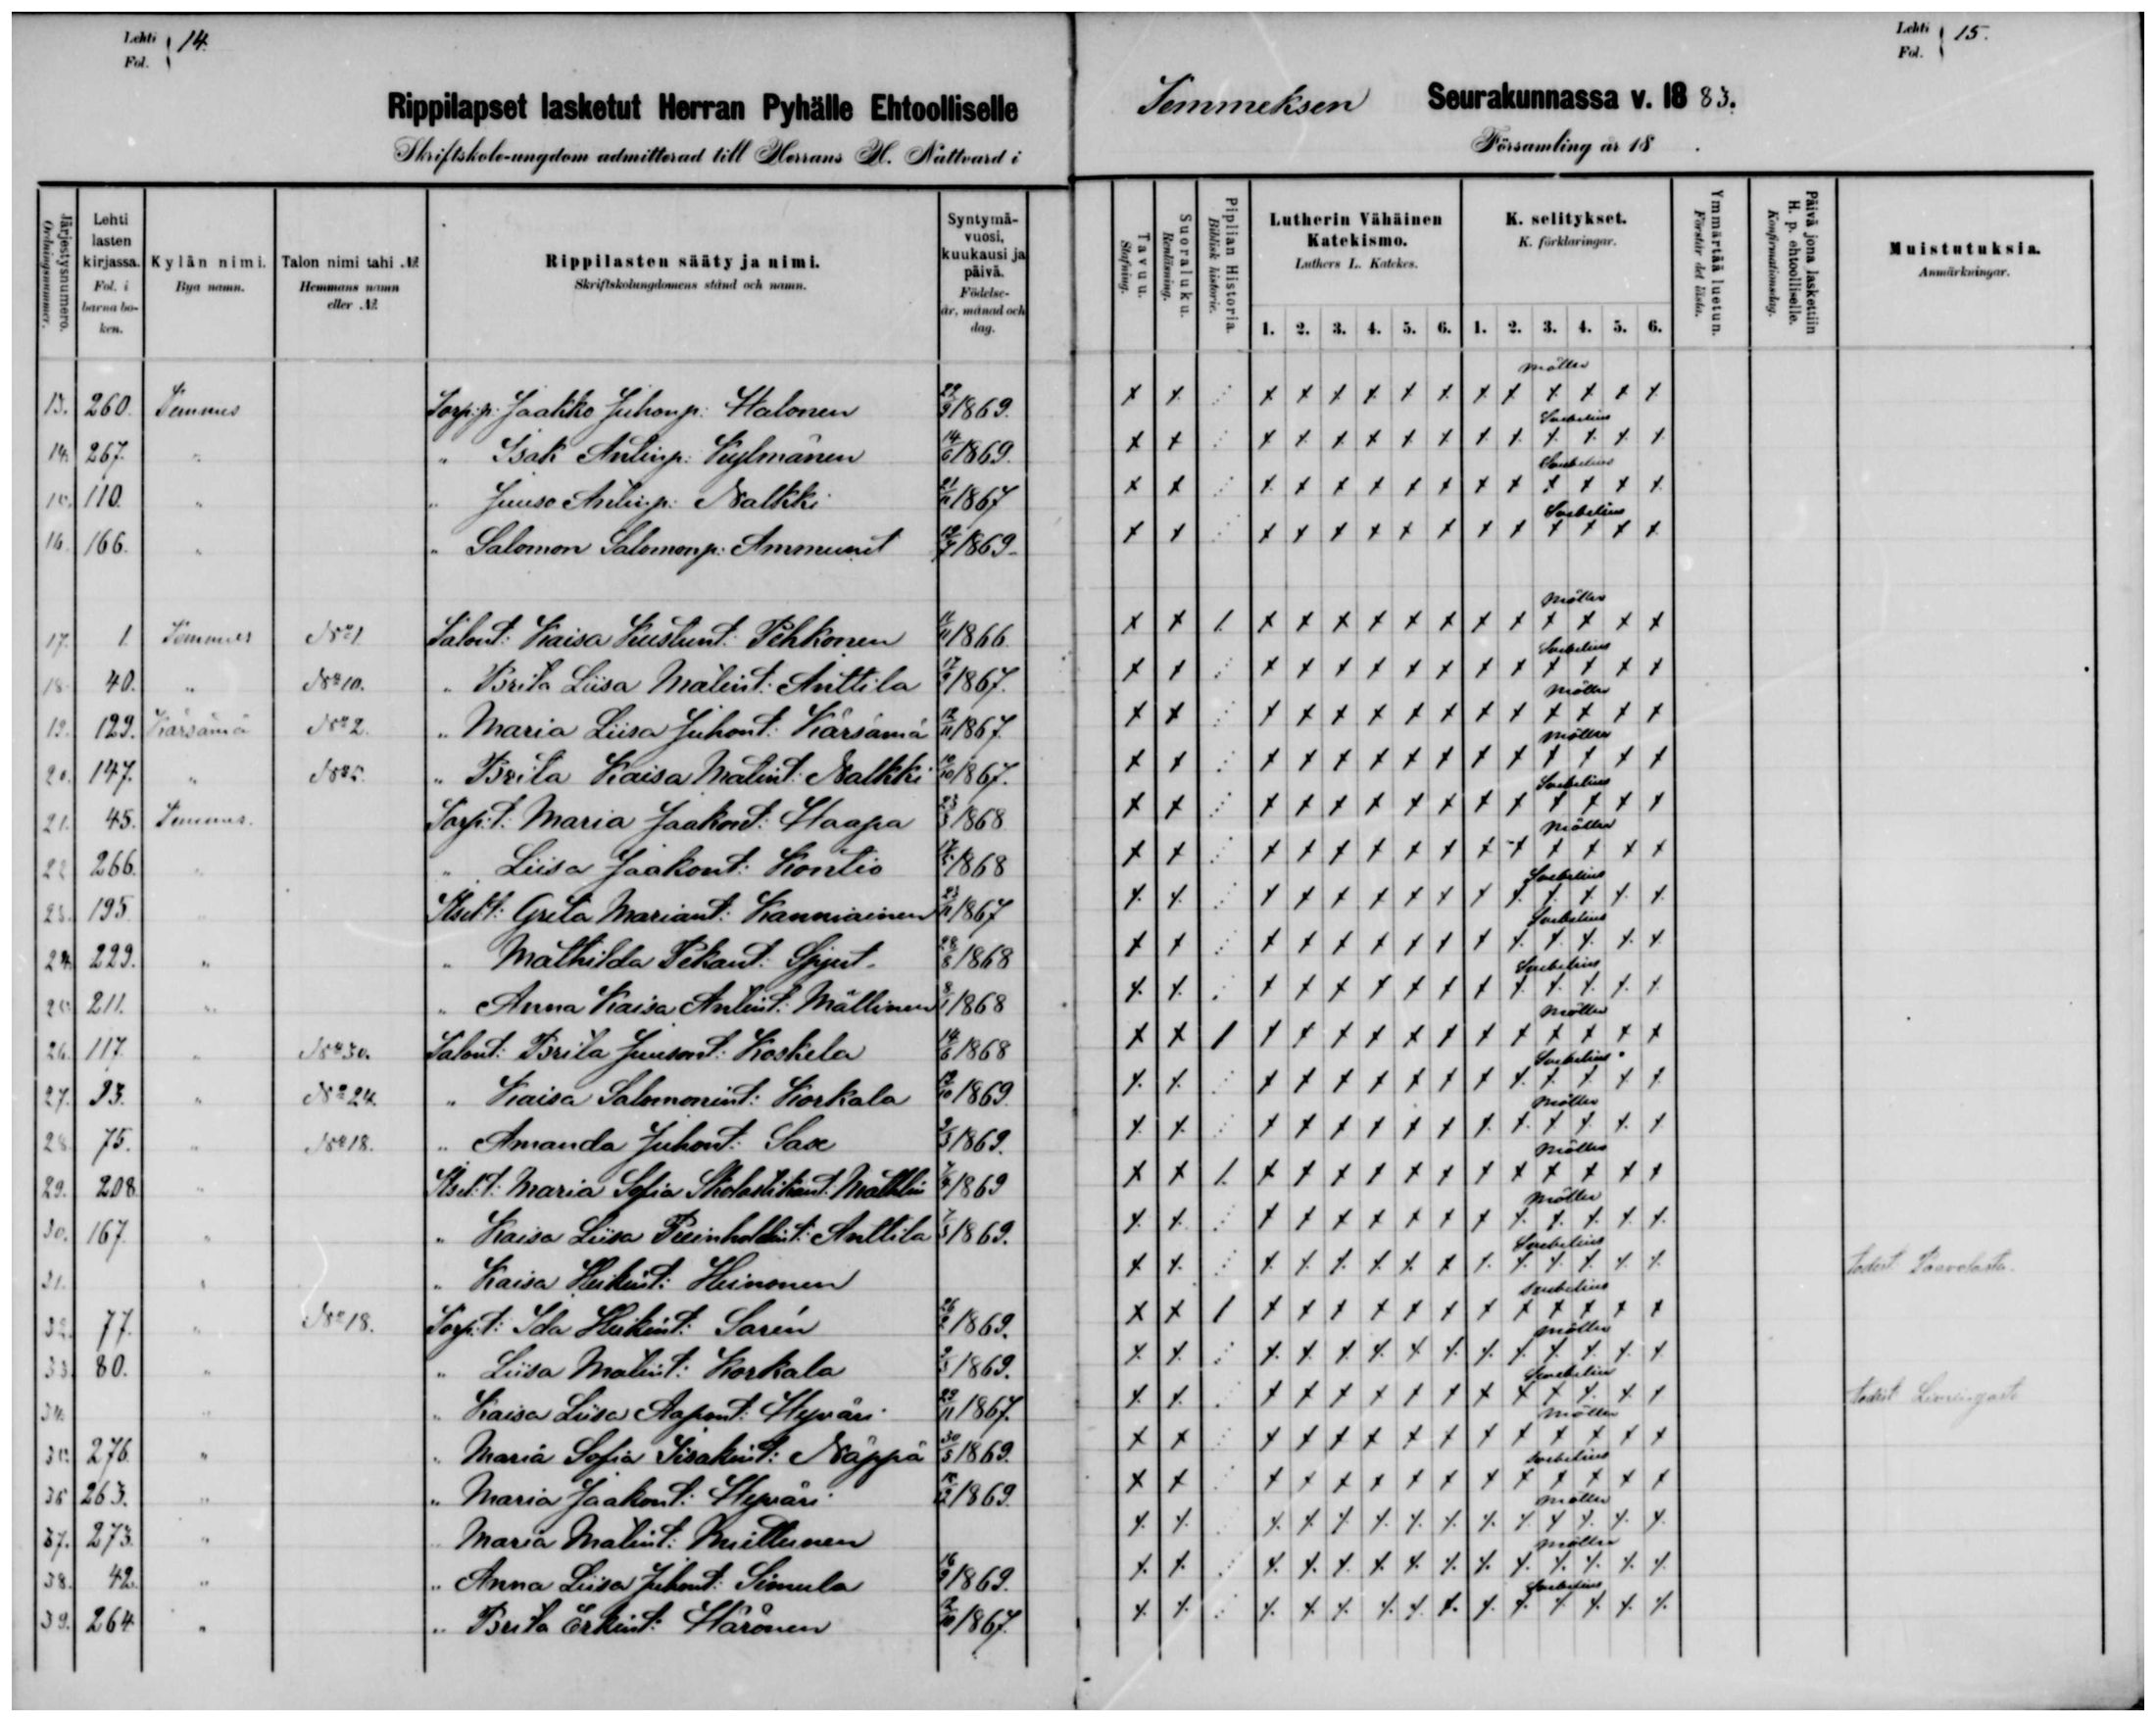 Lehti
Fol.
14.
Rippilapset lasketut Herran Pyhälle Ehtoolliselle
Skriftskole-ungdom admitterad till Herrans H. Nattvard i
Järjestysnumero.
Ordningsnummer.
Lehti lasten kirjassa.
Fol. i barna boken.
Kylän nimi.
Bya namn.
Talon nimi tahi №
Hemmans namn eller №
Rippilasten sääty ja nimi.
Skriftskolungdomens stånd och namn.
Syntymä-vuosi, kuukausi ja päivä.
Födelse-år, månad och dag.
13. 260. Temmes Torp.p: Jaakko Juhonp: Halonen 22/9 1869.
14. 267. " " Isak Antinp: Kylmänen 14/6 1869.
15. 110. " " Juuso Antinp: Nalkki 21/11 1867
16. 166. " " Salomon Salomonp: Ammunet 1869
17. 1. Temmes No 1 Talont: Kaisa Kustunt: Pehkonen 11/11 1866
18. 40. " No 10. " Brita Liisa Matint: Anttila 1867.
19. 129. Kärsämä No 2. " Maria Liisa Juhont: Kärsämä 12/11 1867
20. 147. " No 5. " Brita Kaisa Matint: Nalkki 10/10 1867.
21. 45. Temmes. Torp.t: Maria Jaakont: Haapa 23/3 1868
22. 266. " " Liisa Jaakont: Kontio 1868
23. 195. " Itsel.t: Greta Mariant: Kanniainen 23/11 1867
24. 229. " " Mathilda Pekant: Spjut 28/8 1868
25. 211. " " Anna Kaisa Antint: Mällinen 8/1 1868
26. 117. " No 30. Talont: Brita Juusont: Koskela 14/6 1868
27. 23. " No 24. " Kaisa Salomonint: Korkala 1869
28. 75. " No 18. " Amanda Juhont: Sax 2/3 1869.
29. 208. " Itsel.t: Maria Sofia Skolastikant: Mathlin 1869
30. 167. " " Kaisa Liisa Reinholdint: Anttila 1869.
31. " " Kaisa Heikint: Heinonen
32. 77. " No 18. Torp.t: Ida Heikint: Sarén 26/2 1869.
33. 80. " " Liisa Matint: Korkala 1869.
34. " " Kaisa Liisa Aapont: Hyväri 1867.
35. 276. " " Maria Sofia Iisakint: Näppä 30/5 1869.
36 263. " " Maria Jaakont: Hyväri 1869
37. 273. " " Maria Matint: Kuittunen
38. 42. " " Anna Liisa Juhont: Simula 16/9 1869.
39. 264. " " Brita Erkint: Härönen 1867.
Lehti
Fol.
15.
Temmeksen Seurakunnassa v. 1883.
Församling år 18 .
Tavuu.
Stafning.
Suoraluku.
Renläsning.
Piplian Historia.
Biblisk historie.
Lutherin Vähäinen Katekismo.
Luthers L. Katekes.
1. 2. 3. 4. 5. 6.
K. selitykset.
K. förklaringar.
1. 2. 3. 4. 5. 6.
Ymmärtää luetun.
Förstår det lästa.
Päivä jona laskettiin H. p. ehtoolliselle.
Konfirmationsdag.
Muistutuksia.
Anmärkningar.
Möller
Snebelius
Snebelius
Snebelius
Möller
Snebelius
Möller
Möller
Snebelius
Möller
Snebelius
Snebelius
Snebelius
Möller
Snebelius
Möller
Möller
Möller
Snebelius
todist. Paavolasta.
Snebelius
Möller
Snebelius
todist. Limingasta
Möller
Snebelius
Möller
Möller
Snebelius